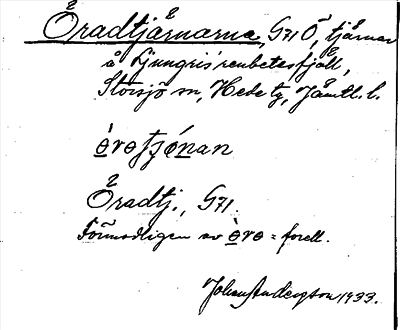 Öradtjårnarna, G71 Ö, tjårnar
å Ljungris' renbetesfjäll,
Storsjö sn, Hede tg, Jämtl. l.
èrɘtjó̱nan
Öradtj., G71.
Förmodligen av èrɘ = forell.
Johan Anderson 1933.